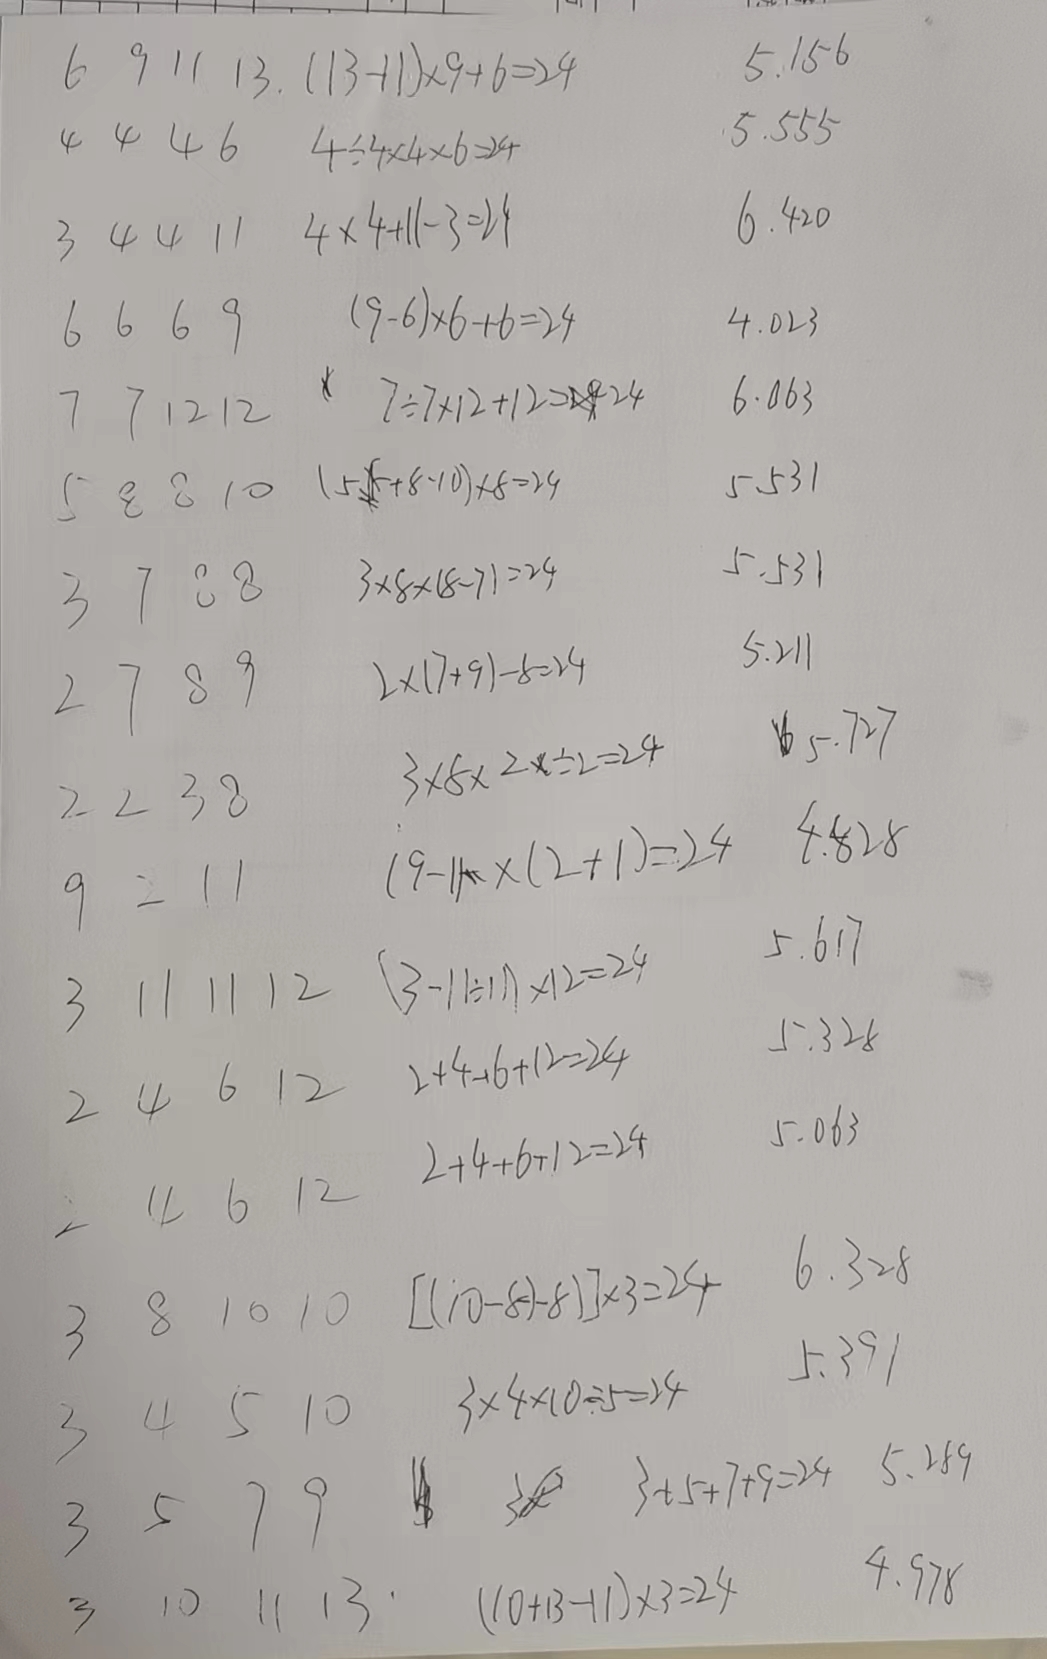 6 9 11 13. (13-11)×9+6=24 5.156
4 4 4 6 4÷4×4×6=24 5.555
3 4 4 11 4×4+11-3=24 6.420
6 6 6 9 (9-6)×6+6=24 4.023
7 7 12 12 7÷7×12+12=24 6.063
5 8 8 10 (5+8-10)×8=24 5.531
3 7 8 8 3×8×(8-7)=24 5.531
2 7 8 9 2×(7+9)-8=24 5.211
2 2 3 8 3×8×2÷2=24 5.727
9 2 1 1 (9-1)×(2+1)=24 4.828
3 11 11 12 (3-11÷11)×12=24 5.617
2 4 6 12 2+4+6+12=24 5.328
2 4 6 12 2+4+6+12=24 5.063
3 8 10 10 [(10-8)-8)]×3=24 6.328
3 4 5 10 3×4×10÷5=24 5.391
3 5 7 9 3+5+7+9=24 5.289
3 10 11 13 (10+13-11)×3=24 4.978